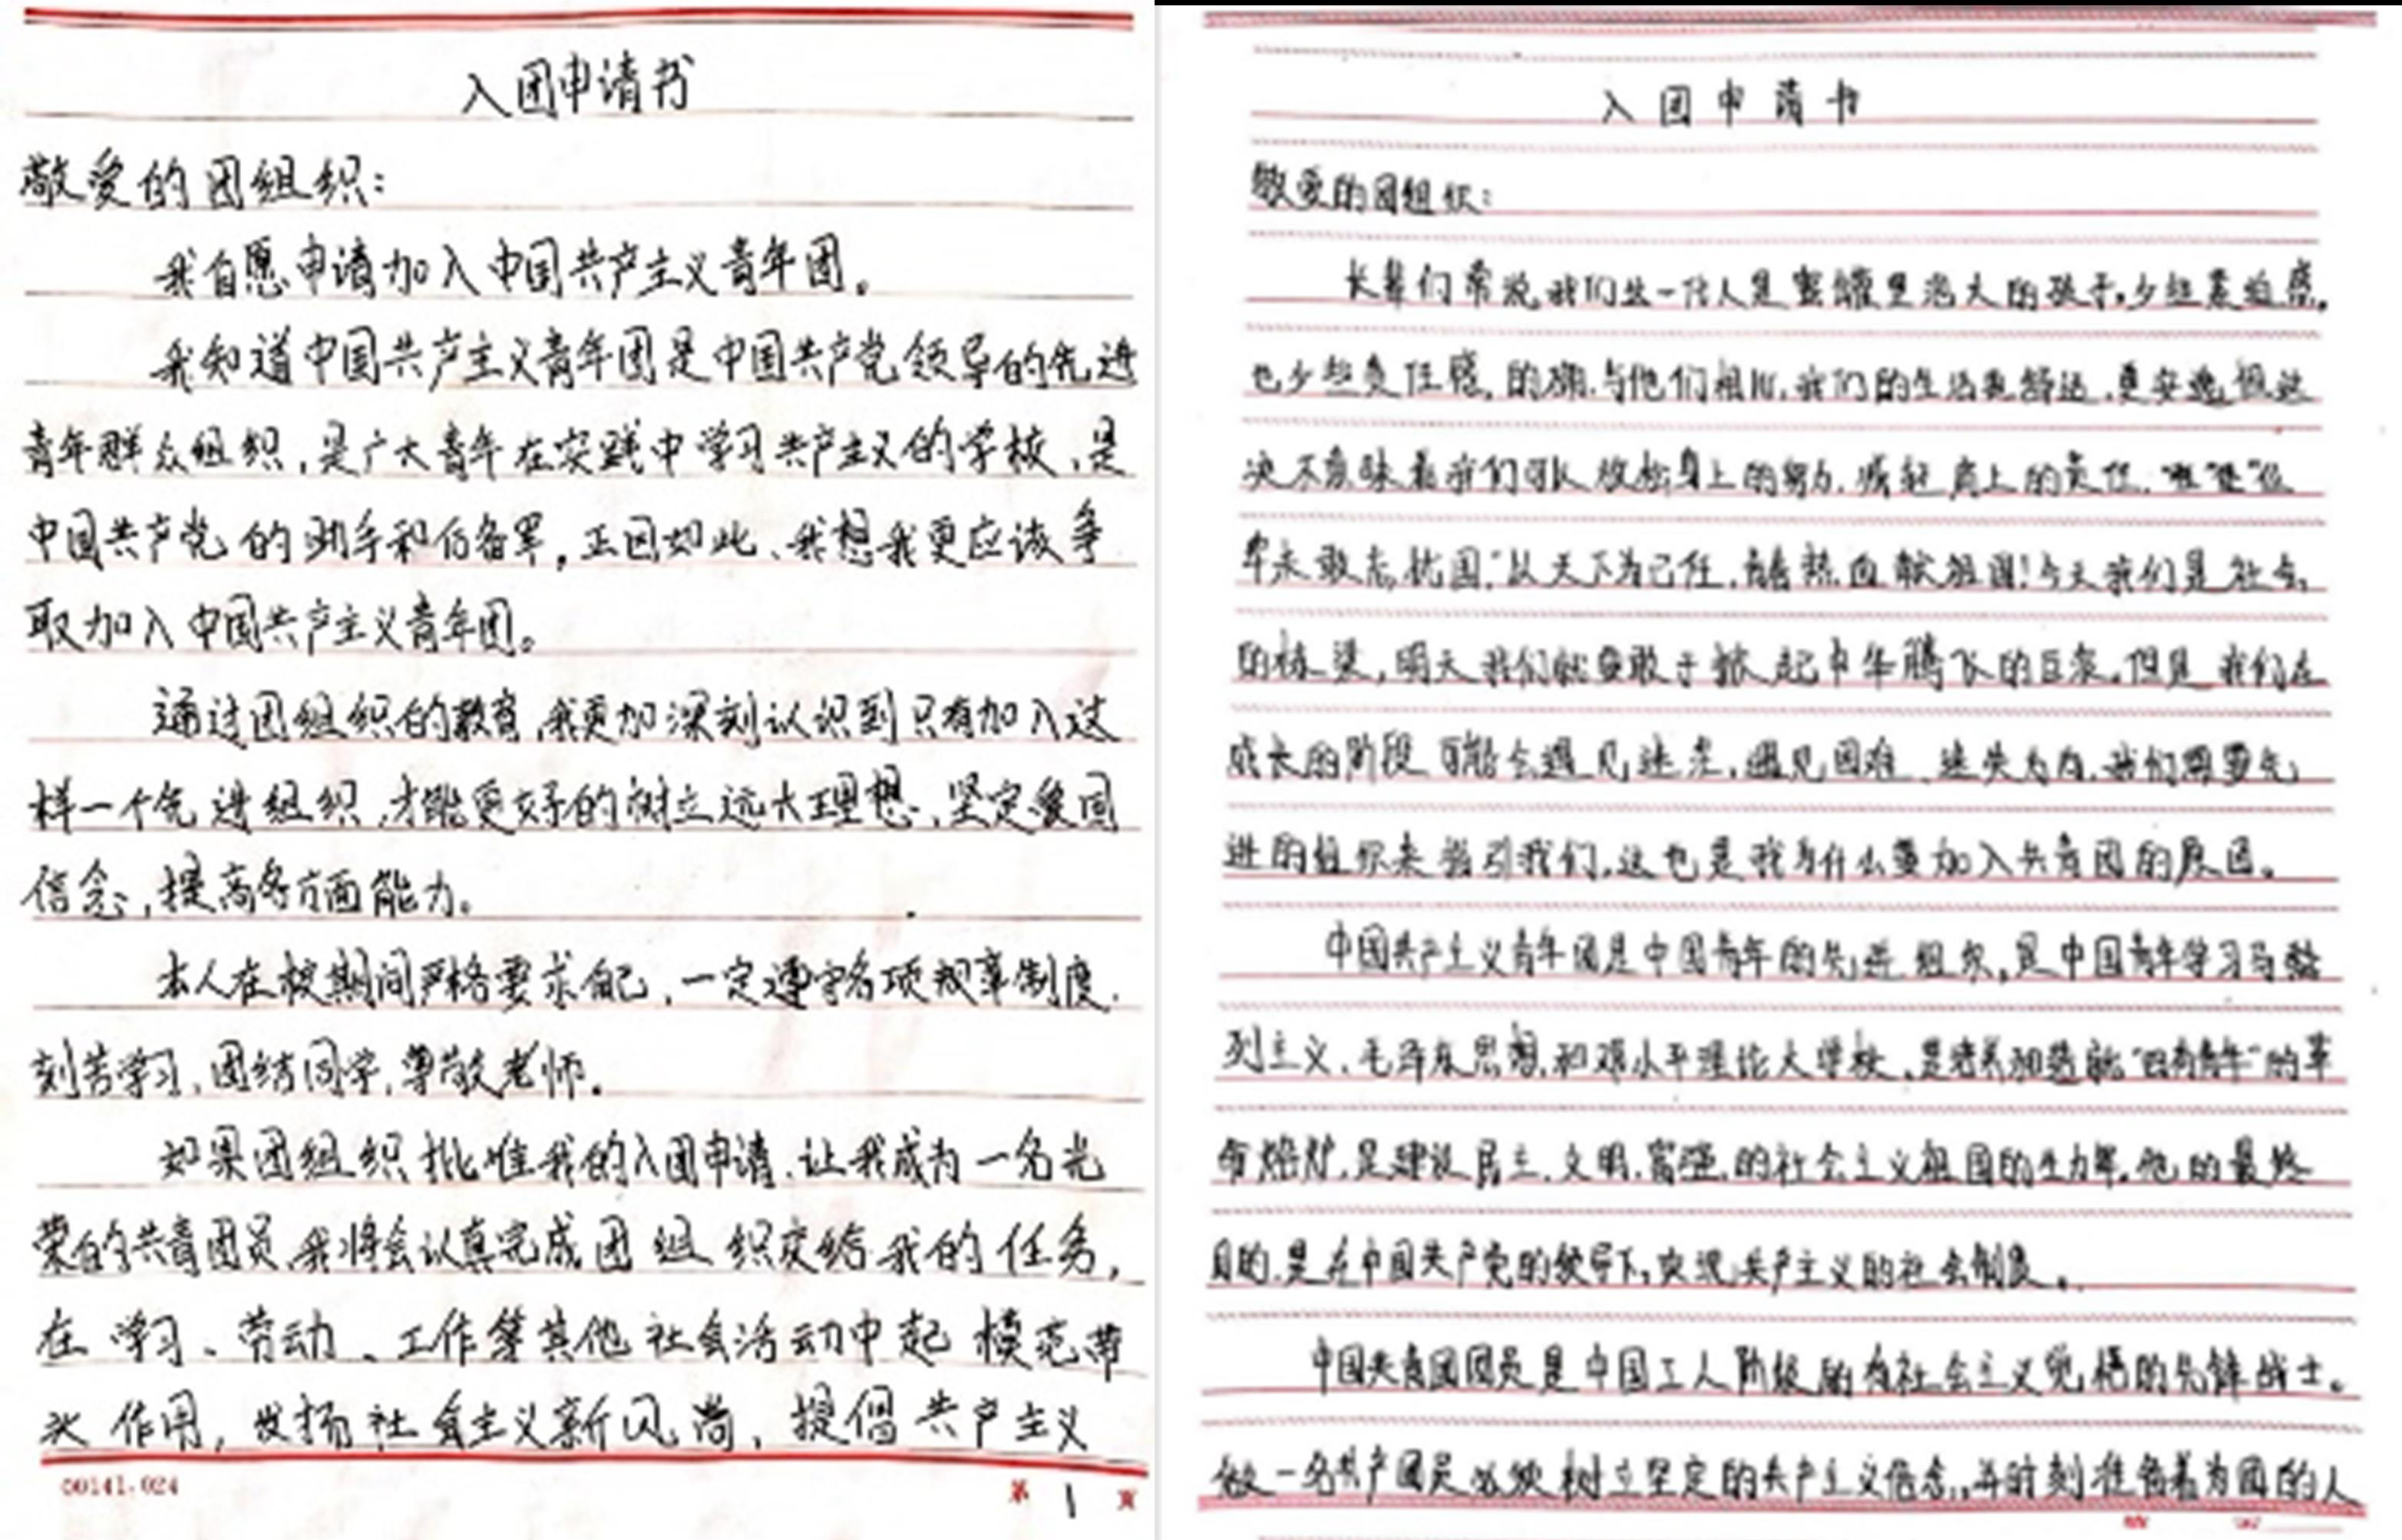 入团申请书
敬爱的团组织：
我自愿申请加入中国共产主义青年团。
我知道中国共产主义青年团是中国共产党领导的先进
青年群众组织，是广大青年在实践中学习共产主义的学校，是
中国共产党的助手和后备军。正因如此、我想我更应该争
取加入中国共产主义青年团。
通过团组织的教育，我更加深刻认识到只有加入这
样一个先进组织，才能更好的树立远大理想，坚定爱国
信念，提高各方面能力。
本人在校期间严格要求自己，一定遵守各项规章制度，
刻苦学习，团结同学，尊敬老师。
如果团组织批准我的入团申请，让我成为一名光
荣的共青团员，我将会认真完成团组织交给我的任务，
在学习、劳动、工作等其他社会活动中起模范带
头作用，发扬社会主义新风尚，提倡共产主义
00141.024
第 1 页
入团申请书
敬爱的团组织：
长辈们常说，我们这一代人是蜜罐里泡大的孩子，少些紧迫感，
也少些责任感。的确，与他们相比，我们的生活更舒适，更安逸，但这
决不意味着我们可以放松身上的努力，减轻肩上的责任，
卑未敢忘忧国"以天下为己任，青春热血献祖国！今天我们是社会
的栋梁，明天我们就要敢于掀起中华腾飞的巨浪。但是我们在
成长的阶段可能会遇见迷茫，遇见困难，迷失方向，我们需要先
进的组织来指引我们，这也是我为什么要加入共青团的原因。
中国共产主义青年团是中国青年的先进组织，是中国青年学习马
列主义、毛泽东思想，和邓小平理论大学校，是培养和造就"四有青年"的革
命熔炉，是建设民主，文明，富强，的社会主义祖国的生力军。他的最终
目的，是在中国共产党的领导下，实现共产主义的社会制度。
中国共青团团员是中国工人阶级的有社会主义觉悟的先锋战士。
做一名共产团员必须树立坚定的共产主义信念，并时刻准备着为团的人